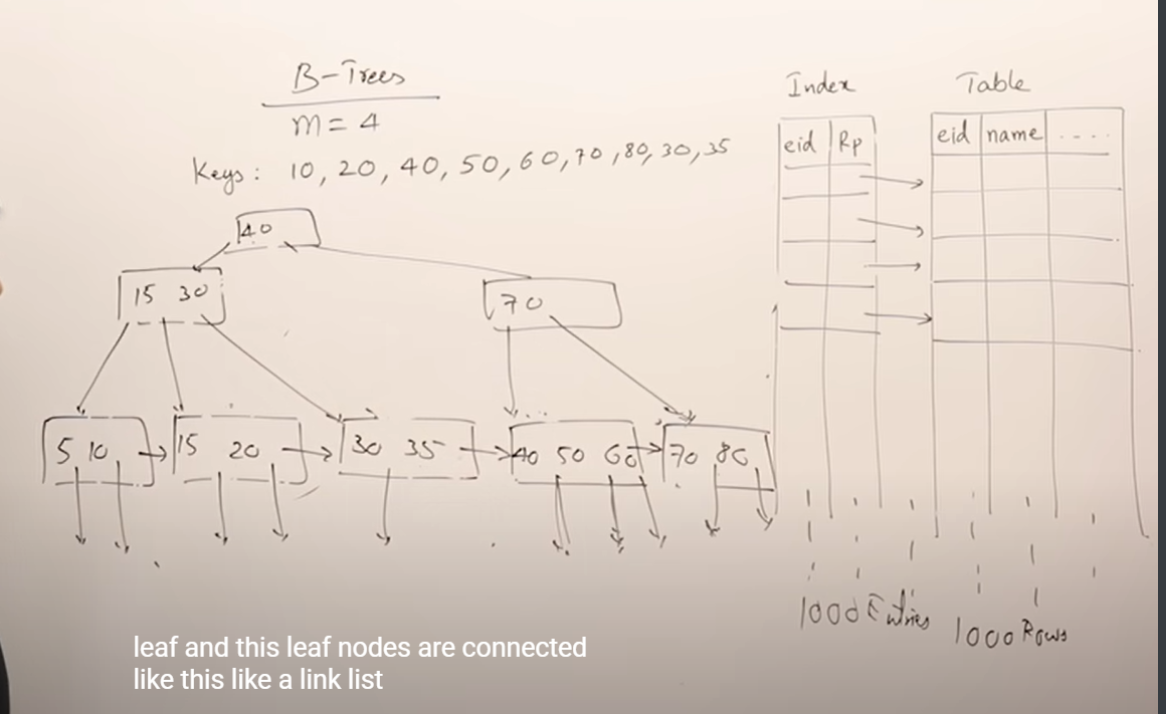 B-Trees
m = 4
Keys: 10, 20, 40, 50, 60, 70, 80, 30, 35
40
15 30
70
5 10
15 20
30 35
40 50 60
70 80
Index
eid Rp
Table
eid name ....
1000 Entries
1000 Rows
leaf and this leaf nodes are connected
like this like a link list